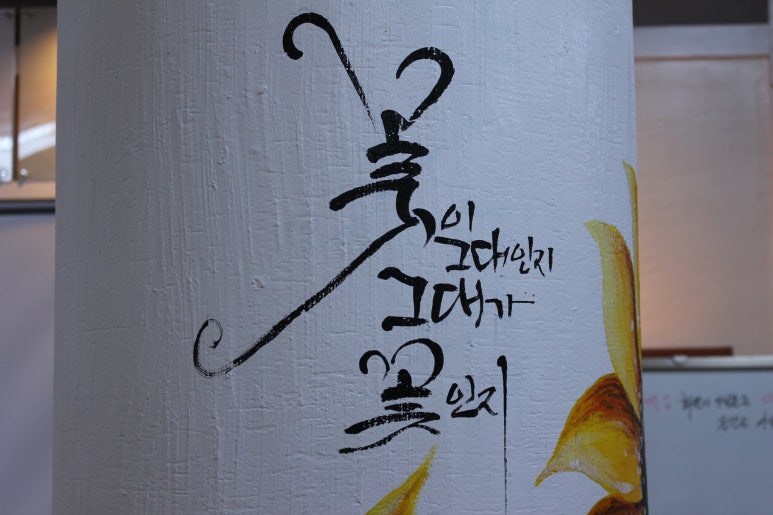 꽃이
그대인지
그대가
꽃인지